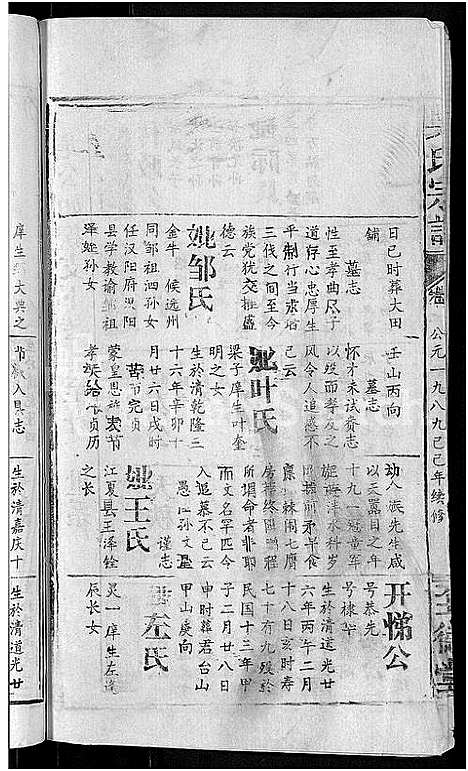 氏宗譜
公元一九八九己巳年续修
日已时葬大田
铺
墓志
性至孝曲尽子
道存心忠厚生
平制行当求诸
三伐之间至今
族党犹交推盛
德云
妣邹氏
金牛 候选州
同邹祖泗孙女
任汉阳府汉阳
县学教谕邹祖
泽姪孙女
壬山丙向
墓志
怀才未试赍志
以没而孝友之
风令人追慕不
已云
妣叶氏
梁子庠生叶奎
明之女
生於清乾隆三
十六年辛卯十
月廿六日戌时
苦节完贞
蒙皇恩旌表节
孝族给 贞历
人族先生咸
以大器目之年
十九 冠童军
旋游泮水科岁
前矛早食
入追慕不已云
愚 孙文
谨志
妣王氏
江夏县王泽铨
之长
开悌公
号恭先
号棣华
生於清道光廿
六年丙午二月
十八日亥时寿
七十有九殁於
民国十三年甲
子二月廿八日
申时葬君台山
甲山庚向
左氏
灵一庠生左逢
辰长女
庠生 大典之
节 入县志
生於清嘉庆十
生於清道光廿